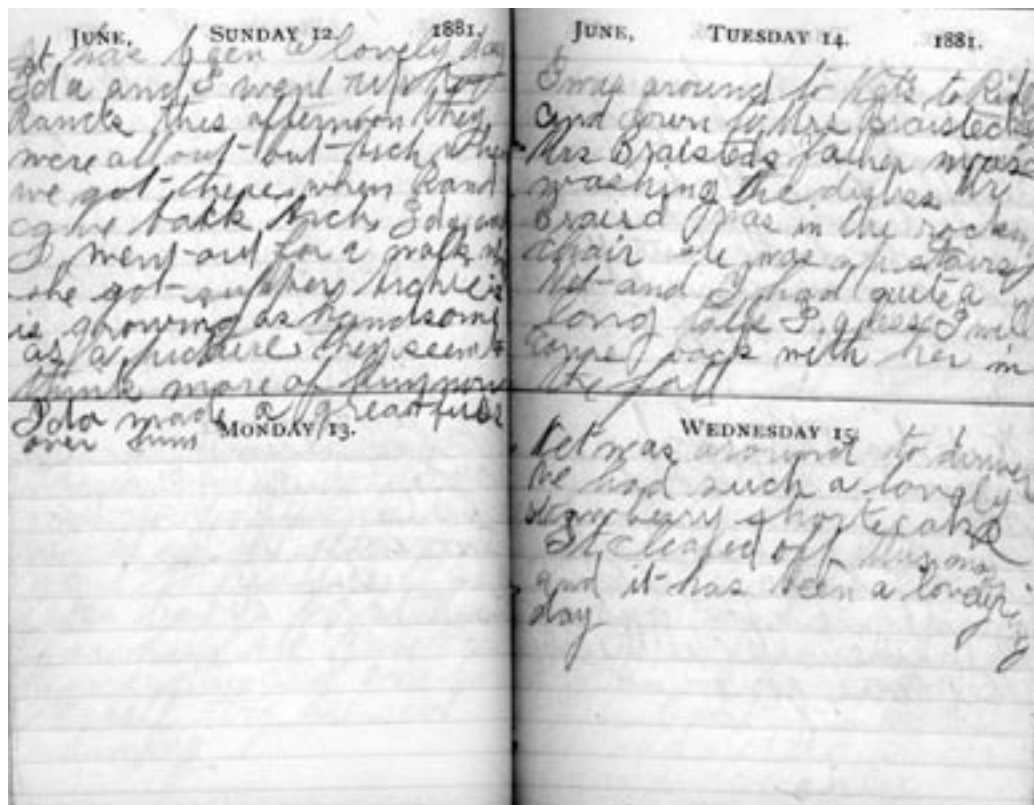 JUNE, SUNDAY 12. 1881.
It has been a lovely day
Ida and I went up to
Rancts this afternoon they
were all out but when
we got there when Rand
came back Ida and
I went out for a walk
she got supper Archie is
is growing as handsome
as a picture they seem to
think more of him now
Ida made a great fuss
over him
MONDAY 13.
JUNE, TUESDAY 14. 1881.
I was around to Kets to
and down to Mrs Braisteds
Mrs Braisteds father was
washing the dishes Mr
Braisd was in the rocking
chair He was upstairs
Ket and I had quite a
long talk I guess I will
come back with her in
the fall
WEDNESDAY 15.
Ket was around to dinner
We had such a lovely
strawberry shortcake
It cleared off this
and it has been a lovely
day